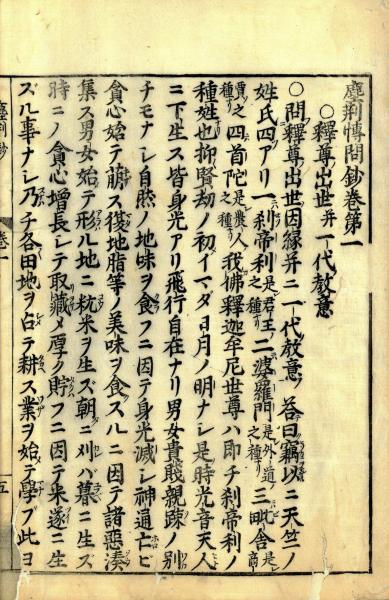 塵荊博問鈔卷第一
○釋尊出世并一代敎意
○問釋尊出世因縁并ニ一代敎意ノ答曰竊以ニ天竺ノ
姓氏四アリ一刹帝利是君王之種ナリ二婆羅門是外道之種ナリ三毗舍是商
賈之種ナリ四首陀是農人之種ナリ我佛釋迦牟尼世尊ハ即チ刹帝利ノ
種姓也抑賢劫ノ初イマダ日月ノ明ナシ是時光音天人
ニ下生ス皆身光アリ飛行自在ナリ男女貴賤親疎ノ別
チモナシ自然ノ地味ヲ食フニ因テ身光滅シ神通亡ビ
貪心始テ萠ス復地脂等ノ美味ヲ食スルニ因テ諸惡湊
集ス男女始テ形ル地ニ秔米ヲ生ズ朝ニ刈ハ暮ニ生ズ
時ニノ貪心增長シテ取藏メ厚ク貯フニ因テ米遂ニ生
ズル事ナシ乃チ各田地ヲ占テ耕ス業ヲ始テ學ブ此ヨ
卷一
五